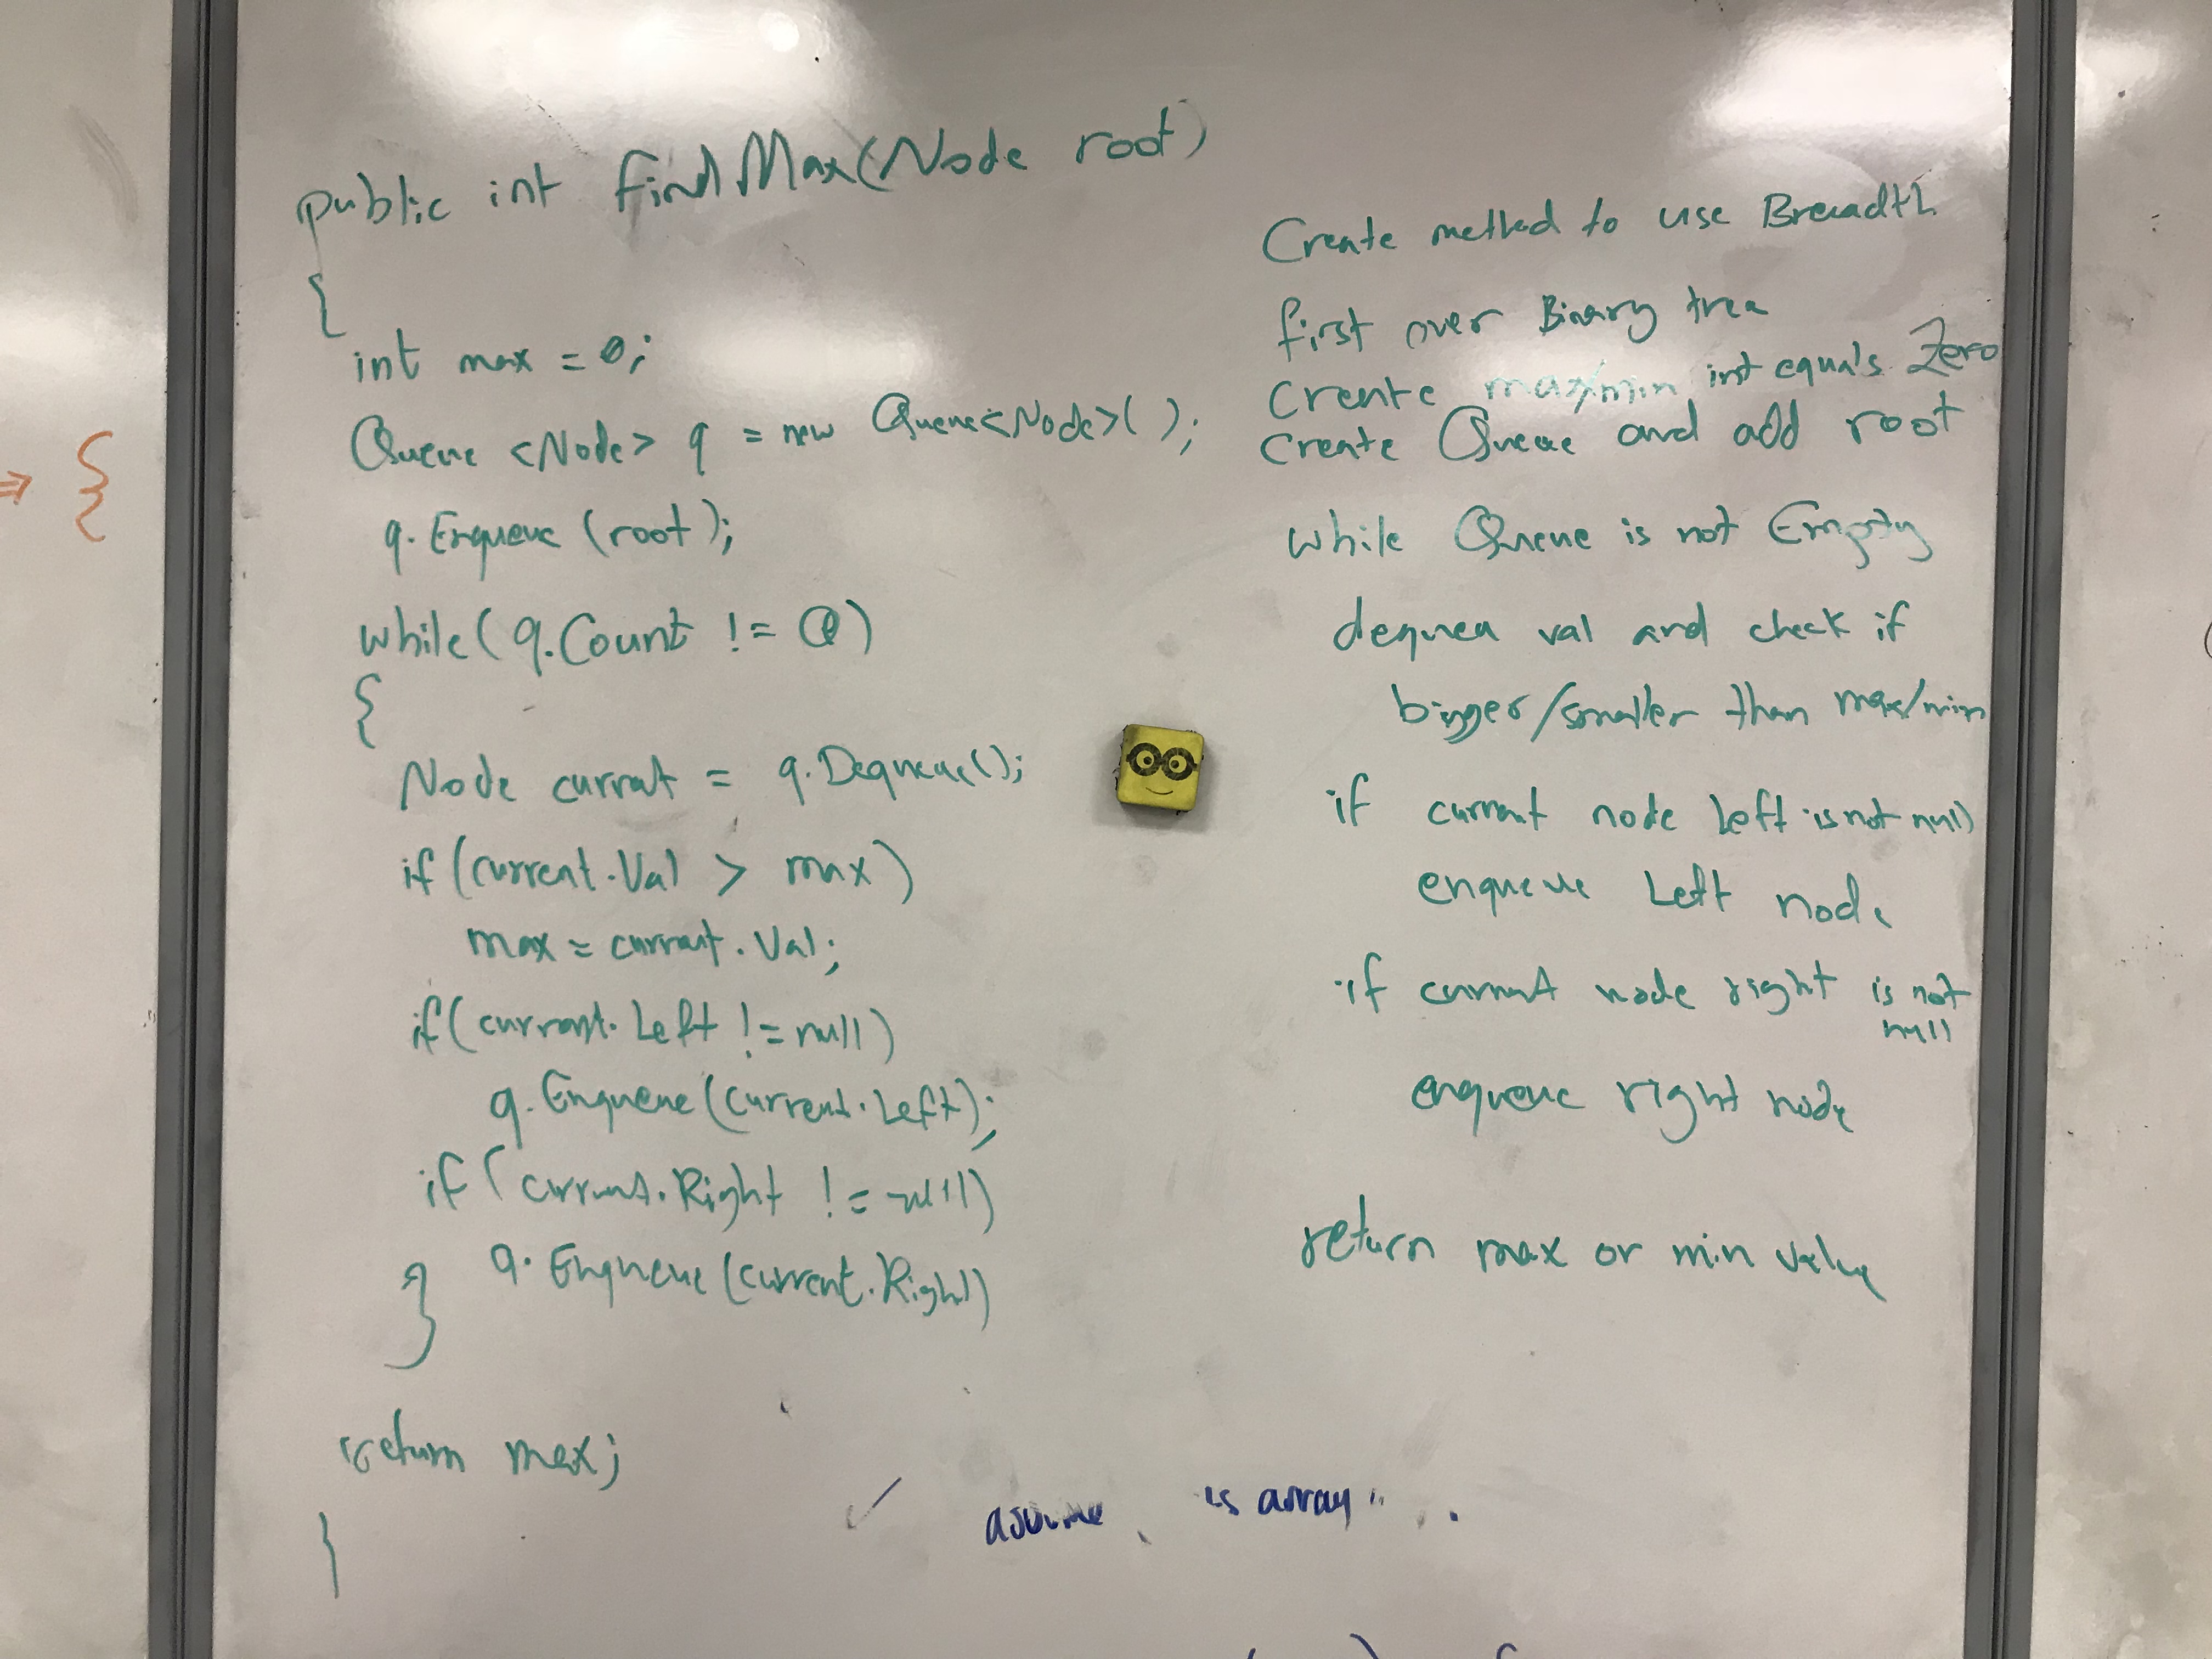 public int findMax(Node root)
{
int max = 0;
Queue <Node> q = new Queue<Node>( );
q.Enqueue (root);
while( q.Count != 0)
{
Node current = q.Dequeue();
if (current.Val > max)
max = current.Val;
if( current.Left != null)
q.Enqueue(current.Left);
if ( current.Right != null)
q.Enqueue (current.Right)
}
return max;
}
Create method to use Breadth
first over Binary tree
Create max/min int equals Zero
Create Queue and add root
while Queue is not Empty
dequeu val and check if
bigger/smaller than max/min
if current node Left is not null
enqueue Left node
if current node right is not
null
enqueue right node
return max or min value
assume is array
⇒ {